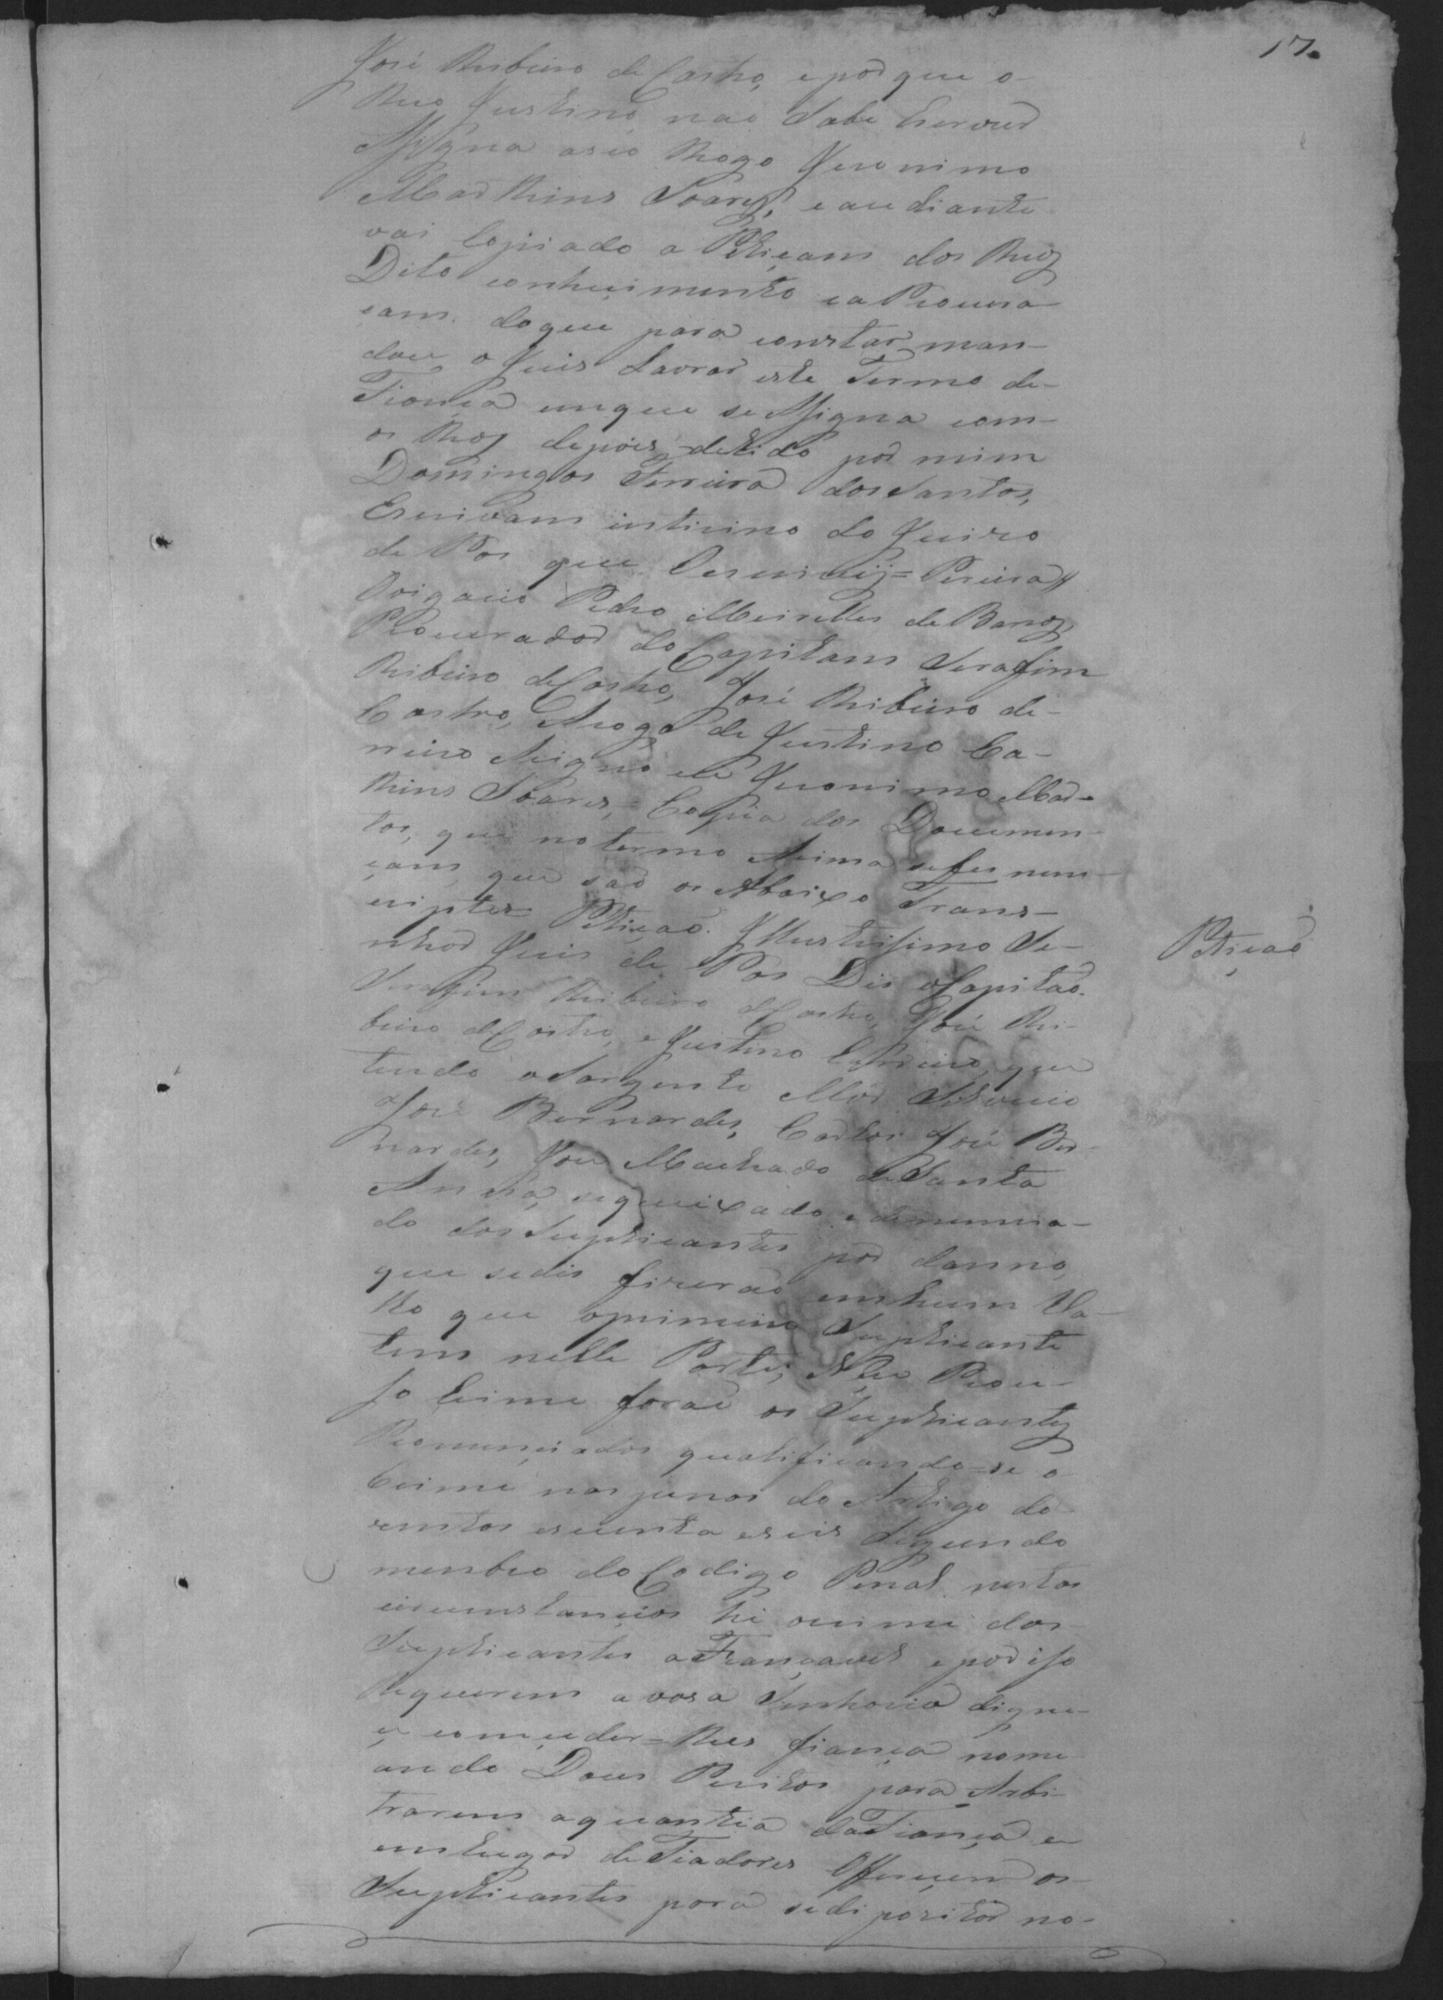 17.
José Ribeiro de Castro, e por que o
Reo Justino não Sabe Escrever
Assigna aseo Rogo Jeronimo
Marthins Soares, e ao diante
vai Copiado a Petiçam dos Reos
Dito conhecimento ea Procura-
çam. do que para constar man-
dou o Juis Lavrar este Termo de-
Fiança em que se Assigna com-
os Reos depois de lido por mim
Domingos Ferreira dos Santos,
Escrivam interino do Juizo
de Pas que Oescrevij = Pereira //
Pedro Meirelles de Barros
Procurador do Capitam Serafim
Ribeiro de Castro, José Ribeiro de-
Castro, Arogo de Justino Ca-
neiro Asigno eu Jeronimo Mar-
thins Soares, = Copia dos Documen-
tos, que no termo Asima se fes men-
çam que são os Abaixo Trans-
criptos Petição. Illustrissimo Se-
nhor Juis de Pas Dis o Capitão
Serafim Ribeiro de Castro, José Ri-
beiro de Castro, e Justino Carneiro, que
tendo o Sargento Mór Antonio
José Bernardes, Carlos José Ber-
nardes, José Machado de Santa
Anna, se queixado e denuncia-
do dos Suplicantes por danno,
que sedis fizerão em hum Va-
llo que o primeiro Suplicante
tem nelle Parte, Neste Proce-
sso Crime forão os Suplicantes
Pronunciados qualificando-se o
Crime nas penas do Artigo du-
zentos secenta eseis Segundo
membro do Codigo Penal nestas
circunstancias hé ocrime dos
Suplicantes aFiançavel e por isso
Requerem a vosa Senhoria digne-
se conceder-lhes fiança nome-
ando Dous Peritos para Arbi-
trarem aquantia da Fiança e
em lugar de Fiadores Offerecem os
Suplicantes para se dipozitar no-
Petição